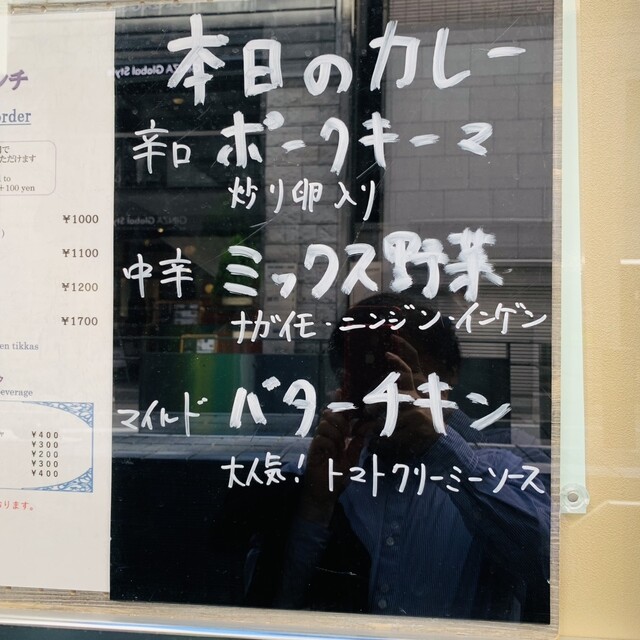 本日のカレー
辛口 ポークキーマ
炒り卵入り
中辛 ミックス野菜
ナガイモ・ニンジン・インゲン
マイルド バターチキン
大人気! トマトクリーミーソース
ンチ
order
で
ただけます
t to
+100 yen
¥1000
)
¥1100
¥1200
¥1700
en tikkas
ク
everage
¥400
¥300
¥200
¥300
¥400
ります。
GINZA Global Style